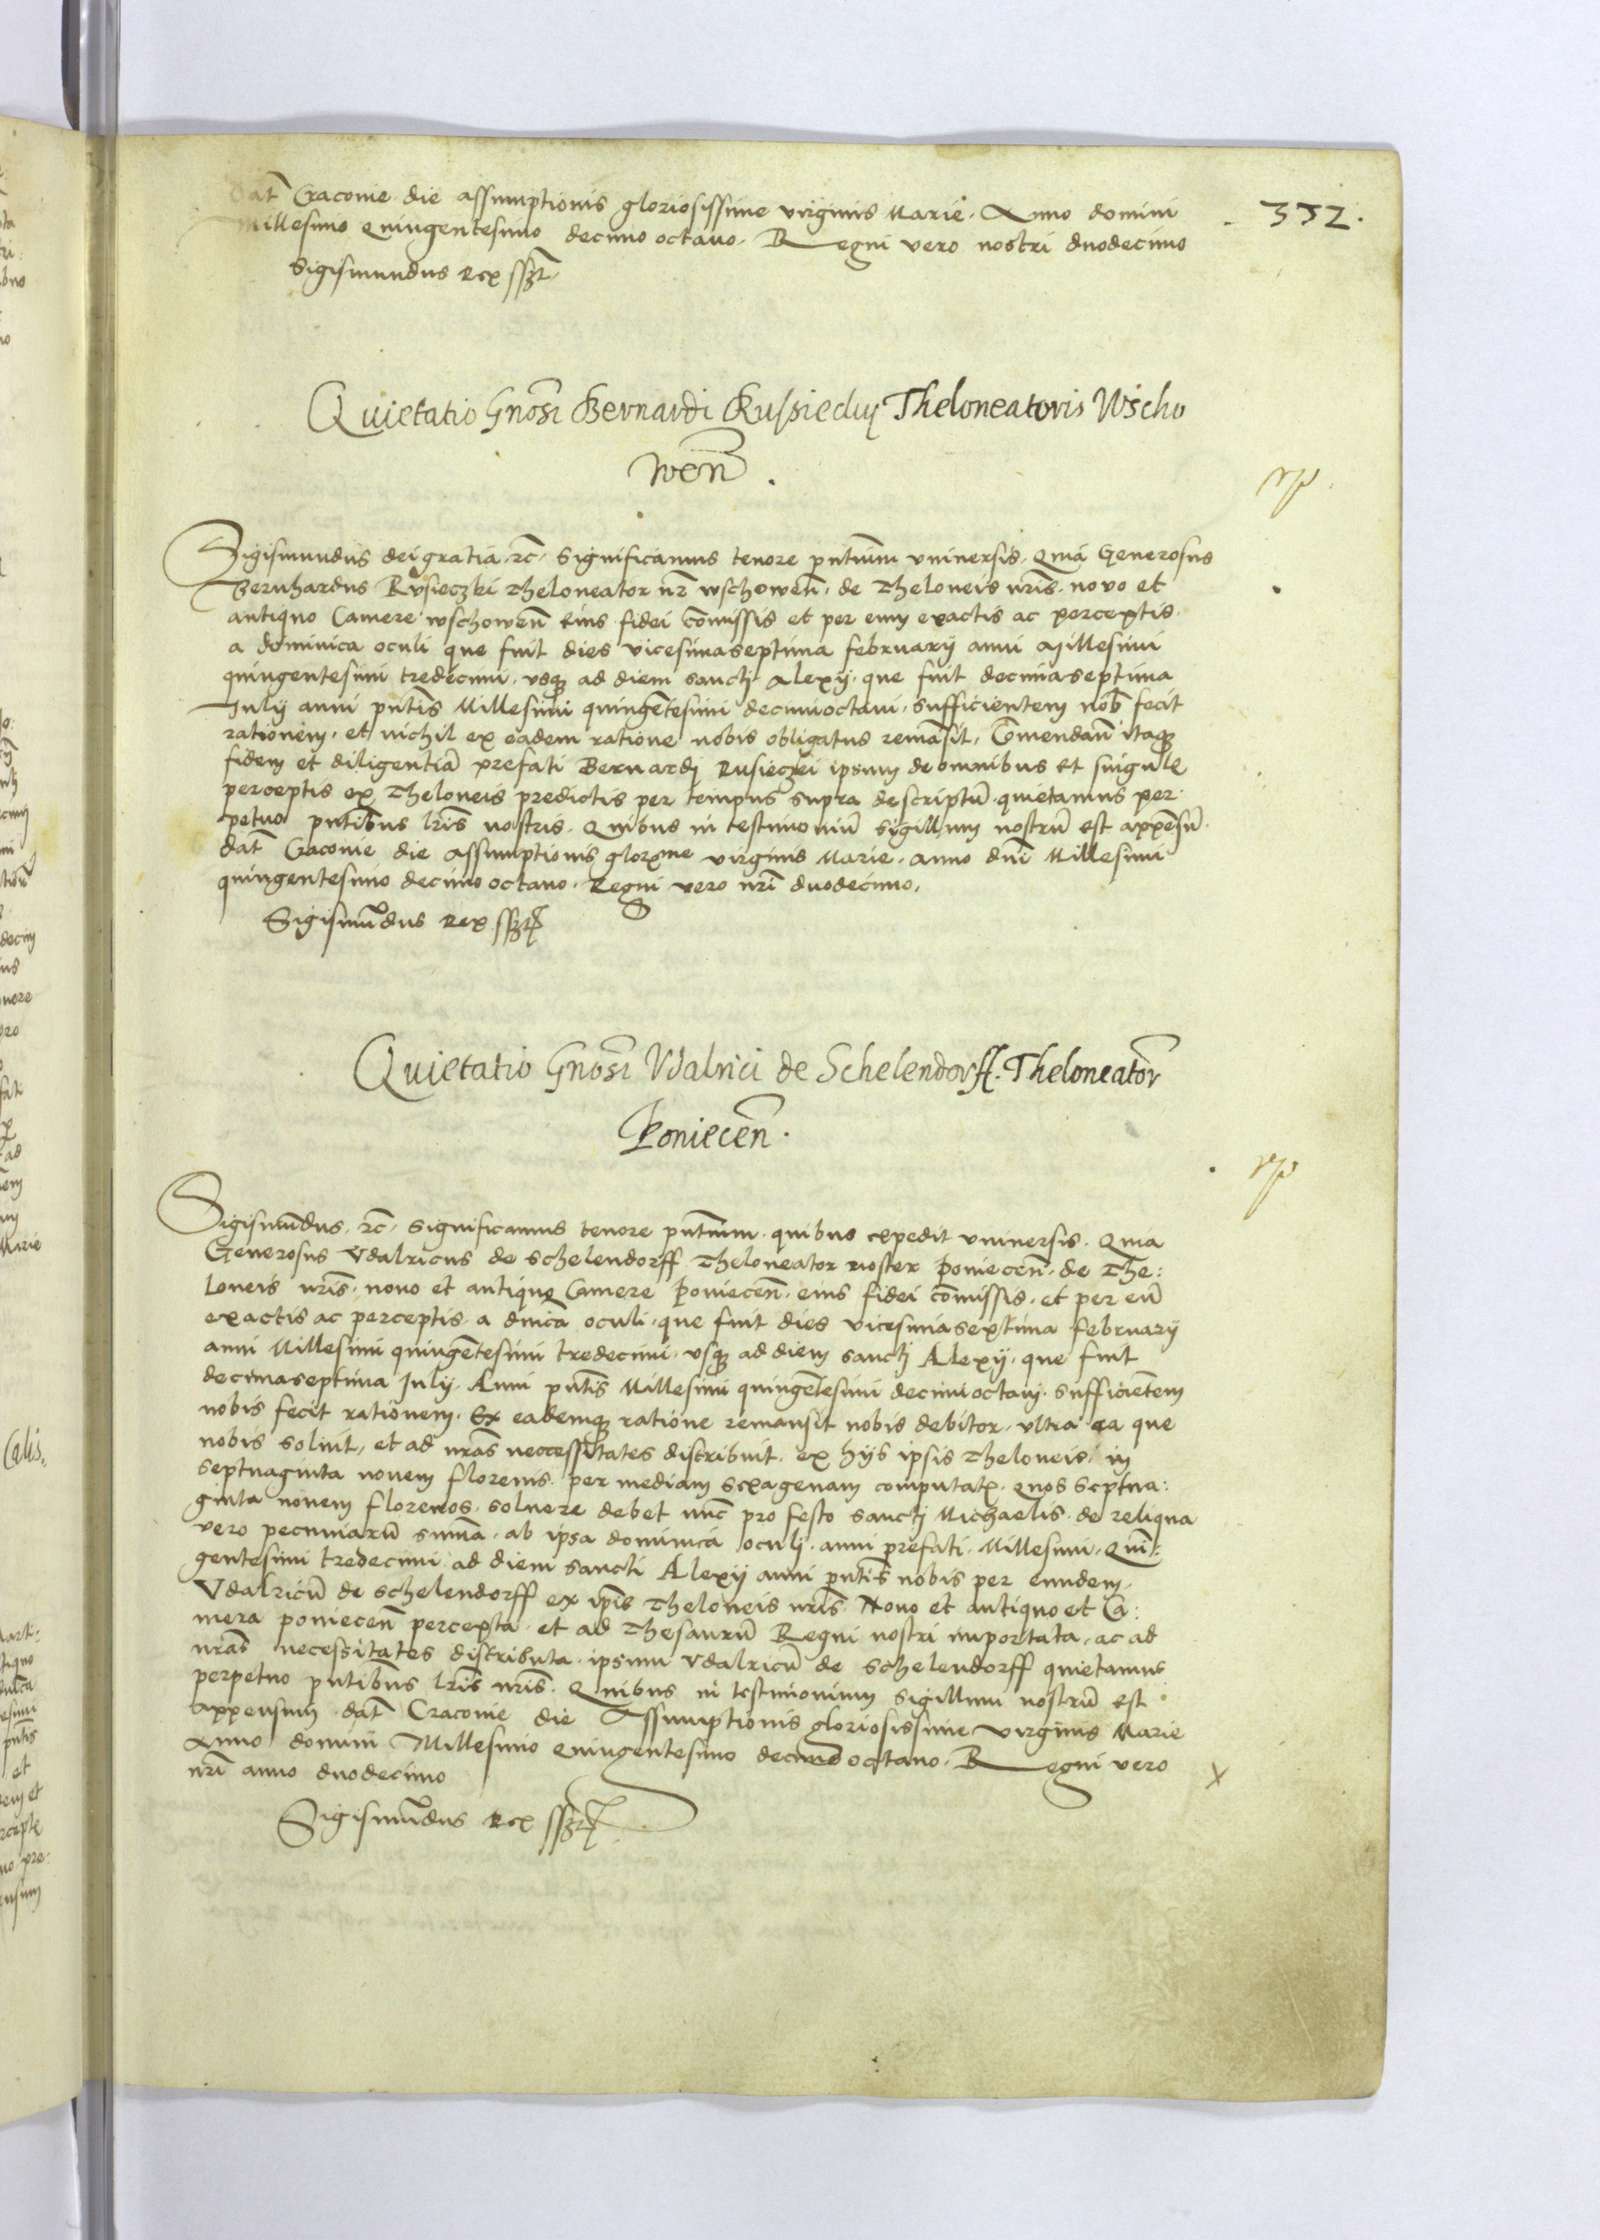 332.
Dat̄ Cracovie die assumptionis gloriosissime virginis Marie. Anno domini
Millesimo Quingentesimo decimo octavo. Regni vero nostri duodecimo
Sigismundus Rex sszt.
Quietatio Gnōsi Bernardi Russieclij Theloneatoris Wscho
wen̄.
Sigismundus dei gratia. rc̄. Significamus tenore pn̄tium vniuersis. Quia Generosus
Bernhardus Rusieczki Theloneator nr̄ wschowen̄. de Theloneis nrīs. novo et
antiquo Camere wschowen̄ eius fidei com̄issis et per eum exactis ac perceptis.
a dominica oculi que fuit dies vicesimaseptima february anni Millesimi
quingentesimi tredecimi. vsqꝫ ad diem sanctj Alexij. que fuit decimaseptima
July anni pn̄tis Millesimi quingētesimi decimioctaui. sufficientem nob̄ fecit
rationem. et nichil ex eadem ratione nobis obligatus remāsit, Cōmendan̄ itaqꝫ
fidem et diligentiā prefati Bernardj Rusieczki ipsum de omnibus et singul̄
perceptis ex Theloneis predictis per tempus supra descriptū. quietamus per:
petuo pn̄tibus lrīs nostris. Quibus in testimoniū sigillum nostrū est appēsū.
dat̄ Cracovie die assumptionis glorxme virginis Marie. anno dn̄i Millesimi
quingentesimo decimo octavo. Regni vero nrī duodecimo.
Sigismūdus Rex sszt
Quietatio Gnōsi Vdalrici de Schelendorff. Theloneatōr
Poniecen̄.
Sigismūdus. rc̄. Significamus tenore pn̄tium. quibus expedit vniuersis. Quia
Generosus Vdalricus de Schelendorff Theloneator noster Poniecen̄. de The:
loneis nrīs. novo et antiquo Camere Poniecen̄. eius fidei com̄issis. et per eū
exactis ac perceptis. a dnīca oculi. que fuit dies vicesimasextima february
anni Millesimi quingētesimi tredecimi. vsqꝫ ad diem sanctj Alexij. que fuit
decimaseptima July. Anni pn̄tis Millesimi quingētesimi decimi octavi. sufficiētem
nobis fecit rationem. Ex eademqꝫ ratione remansit nobis debitor. vltra ea que
nobis soluit, et ad nrās neccessitates distribuit. ex hijs ipsis Theloneis. in
septuaginta novem florenis. per mediam sexagenam computatx. Quos septua:
ginta novem florenos. soluere debet nūc pro festo sanctj Michaelis. de reliqua
vero pecuniarū sum̄a. ab ipsa dominica oculj. anni prefati. Millesimi. Quin:
gentesimi tredecimi ad diem sancti Alexij anni pn̄tis nobis per eundem.
Vdalricū de Schelendorff ex ip̄is Theloneis nrīs. Novo et antiquo et Ca:
mera poniecen̄ percepta. et ad Thesaurū Regni nostri importata. ac ad
nrās necessitates distributa. ipsum Vdalricū de Schelendorff quietamus
perpetuo pn̄tibus lrīs nrīs. Quibus in testimonium sigillum nostrū est
appensum. dat̄ Cracovie die Assumptionis gloriosissime virginis Marie
Anno domini Millesimo Quingentesimo decimo octavo. Regni vero
nrī anno duodecimo
Sigismūdus Rex sszt